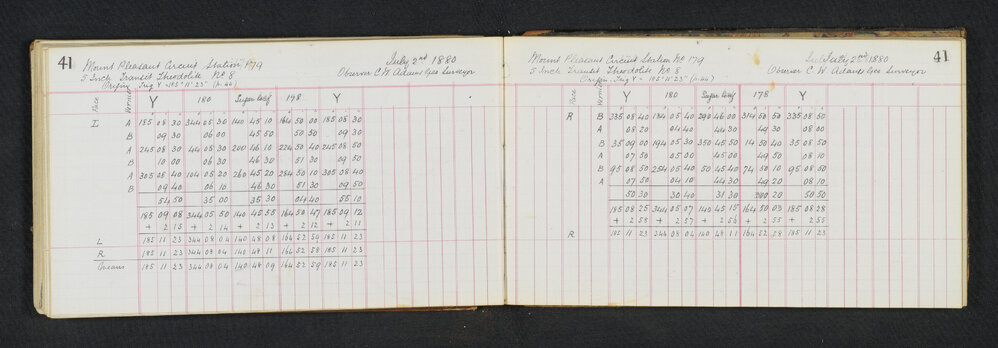 41
Mount Pleasant Circuit Station No 179 July 2nd 1880
5 Inch Transit Theodolite No 8 Observer C W Adams Geo Surveyor
Origin Trig Y = 185° 11' 23" (p. 40)
Face Vernier Y 180 Sugar Loaf 198 Y
L A 185 08 30 344 05 30 140 45 10 164 50 00 185 08 30
B 09 30 06 00 45 50 50 50 09 30
A 245 08 30 44 05 30 200 46 10 224 50 40 245 08 50
B 10 00 06 30 46 30 51 30 09 50
A 305 08 40 104 05 20 260 45 20 284 50 10 305 08 40
B 09 40 06 10 46 30 51 30 09 50
54 50 35 00 35 30 04 40 55 10
185 09 08 344 05 50 140 45 55 164 50 47 185 09 12
+ 2 15 + 2 14 + 2 13 + 2 12 + 2 11
L 185 11 23 344 08 04 140 48 08 164 52 59 185 11 23
R 185 11 23 344 08 04 140 48 11 164 52 58 185 11 23
Means 185 11 23 344 08 04 140 48 09 164 52 59 185 11 23
41
Mount Pleasant Circuit Station No 179 July 2nd 1880
5 Inch Transit Theodolite No 8 Observer C. W. Adams Geo Surveyor
Origin Trig Y = 185° 11' 23" (p. 40)
Face Vernier Y 180 Sugar Loaf 178 Y
R B 335 08 40 134 05 40 290 46 00 314 50 50 335 08 50
A 08 20 04 40 44 30 49 30 08 00
B 35 09 00 194 05 30 350 45 50 14 50 40 35 08 50
A 07 50 05 00 45 00 49 50 08 10
B 95 08 50 254 05 40 50 45 40 74 50 10 95 08 50
A 07 50 04 10 44 30 49 20 08 10
50 30 30 40 31 30 20 50 50
185 08 25 344 05 07 140 45 15 164 50 03 185 08 28
+ 2 58 + 2 57 + 2 56 + 2 55 + 2 55
R 185 11 23 344 08 04 140 48 11 164 52 58 185 11 23